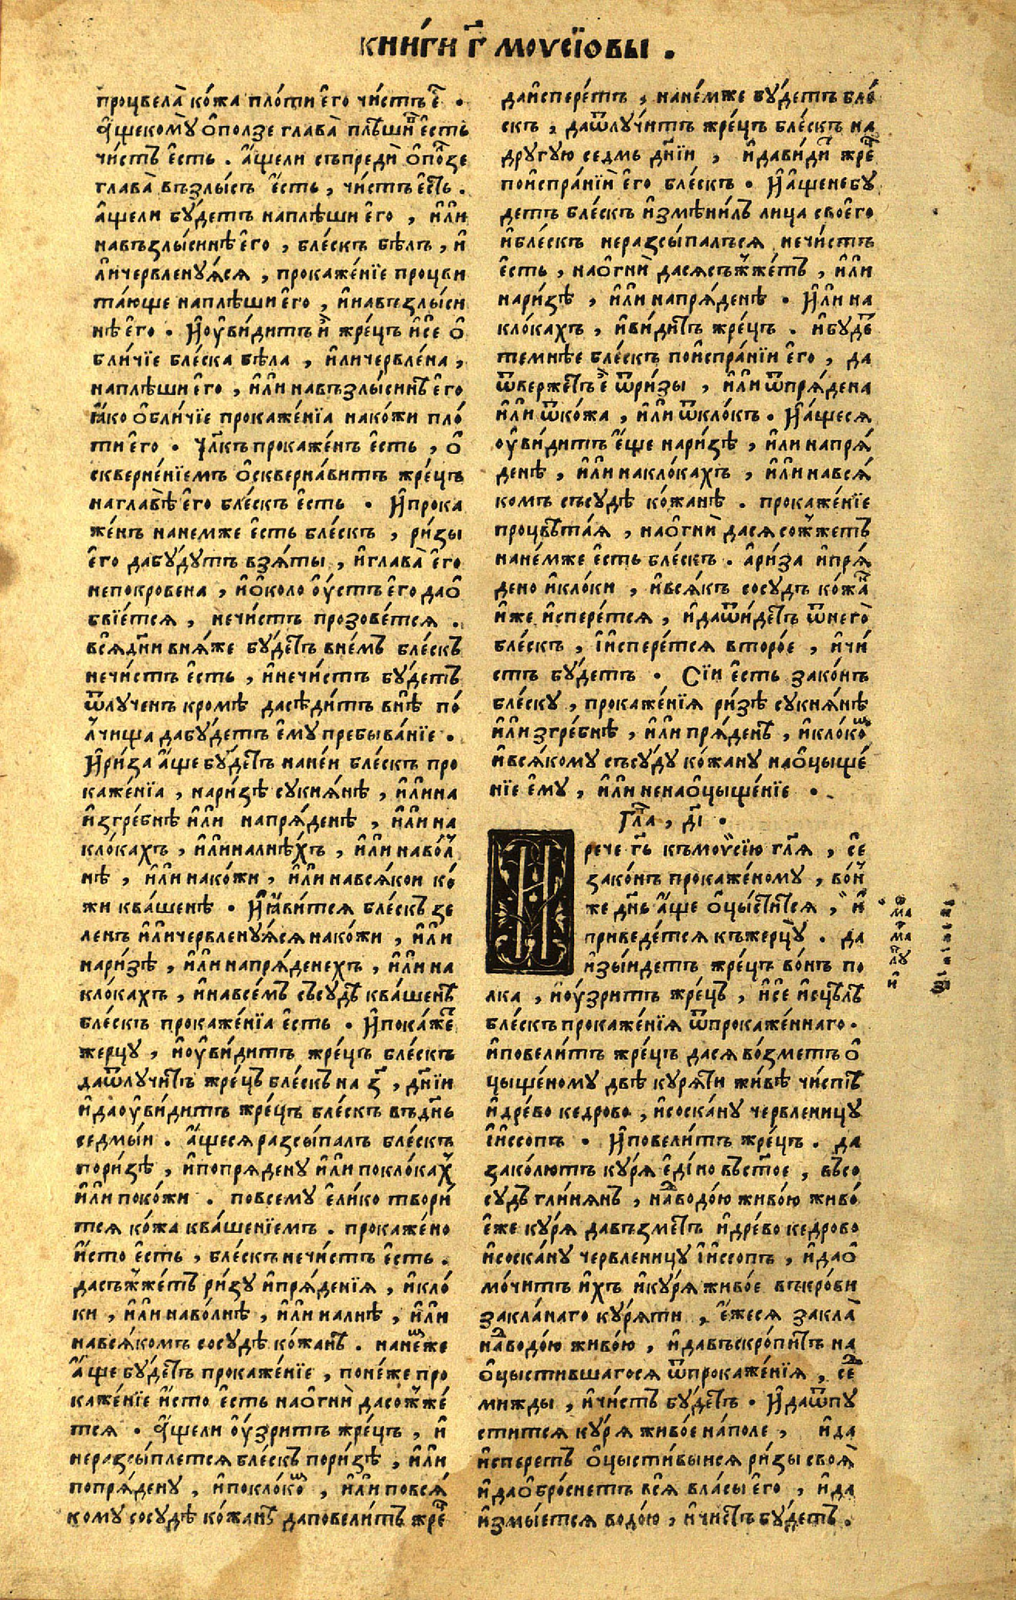 книги г҃ моѵсїовы .
процвела̀ ко́жа пло́ти є҆го̀ чи́стъ е҆ .
а҆́ще комꙋ̀ ѻ҆ползе глава̀ плѣши́въ є҆сть
чи́стъ є҆сть . а҆́щели съпредѝ ѻ҆по́лзе
глава̀ възлы́съ є҆сть , чи́стъ є҆сть .
а҆́щели бꙋ́детъ наплѣ́ши є҆го̀ , и҆́ли
навъзлы́синѣ є҆го̀ , бле́скъ бѣ́лъ , и҆
личервленꙋ́яся , прокаже́нїе процви
та́юще наплѣ́ши є҆го̀ , и҆навъзлы́си
нѣ є҆го̀ . И҆оу҆ви́дитъ и҆̀ жре́цъ и҆сѐ ѻ҆
бли́чїе бле́ска бѣ́ла , и҆личервле́на ,
наплѣ́ши є҆го̀ , и҆́ли навъзлы́синѣ є҆го̀
ꙗ҆́ко ѻ҆бли́чїе прокаже́нїа нако́жи пло́
ти є҆го̀ . Чл҃къ прокаже́нъ є҆сть , ѻ҆
скверне́нїемъ ѻ҆скверна́витъ жре́цъ
наглавѣ̀ є҆го̀ бле́скъ є҆сть . И҆прока
же́нъ нанемже є҆сть бле́скъ , ри́зы
є҆го̀ дабꙋ́дꙋтъ взя́ты , и҆глава̀ є҆го̀
непокрове́на , и҆ѻ҆́коло оу҆́стъ є҆го̀ даѻ҆
бвїе́тся , нечи́стъ прозове́тся .
вся̀дн҃и вня́же бꙋ́детъ внє́мъ бле́скъ
нечи́стъ є҆сть , и҆нечи́стъ бꙋ́детъ
ѿлꙋче́нъ кромѣ̀ дасѣди́тъ внѣ̀ по́
лчища дабꙋ́детъ є҆мꙋ пребыва́нїе .
И҆ри́за а҆́ще бꙋ́детъ нане́и бле́скъ про
каже́нїа , нари́зѣ сꙋкня́нѣ , и҆́лина
и҆згре́бнѣ и҆́ли напря́денѣ , и҆́ли на
кло́кахъ , и҆́линалнѣ́хъ , и҆́ли наво́л
нѣ , и҆́ли нако́жи , и҆́ли нався́кои ко́
жи ква́шенѣ . И҆ꙗ҆́вится бле́скъ зе
ле́нъ и҆́личервленꙋ́яся нако́жи , и҆́ли
нари́зѣ , и҆́ли напря́денехъ , и҆́ли на
кло́кахъ , и҆навсе́мъ съсꙋ́дѣ ква́шенѣ
бле́скъ прокаже́нїа є҆сть . И҆пока́же
жерцꙋ , и҆оу҆ви́дитъ жре́цъ бле́скъ
даѿлꙋчи́тъ жре́цъ бле́скъ на з҃ , дн҃їи
и҆даоу҆ви́дитъ жре́цъ бле́скъ въдн҃ь
седмы́и . а҆́щеся разсы́палъ бле́скъ
пори́зѣ , и҆попря́денꙋ и҆́ли покло́кахъ
и҆́ли поко́жи . повсемꙋ є҆ли́ко твори́
тся ко́жа ква́шенїемъ . прокаже́но
и҆́сто є҆сть , бле́скъ нечи́стъ є҆сть .
дасъжже́тъ ри́зꙋ и҆пря́денїя , и҆кло́
ки , и҆́ли наво́лнѣ , и҆́ли налнѣ̀ , и҆́ли
нався́комъ сосꙋ́дѣ ко́жанѣ . нане́мже
а҆́ще бꙋ́детъ прокаже́нїе , поне́же про
каже́нїе и҆́сто є҆сть наѻ҆гнѝ дасожже́
тся . а҆́щели оу҆́зритъ жре́цъ , и҆
неразсы́плется бле́скъ пори́зѣ , и҆́ли
попря́денꙋ , и҆покло́комъ , и҆́ли повся́
комꙋ сосꙋ́дѣ ко́жанѣ даповели́тъ жре́ц
даи҆спере́тъ , нане́мже бꙋ́детъ бле́
скъ , даѿлꙋчи́тъ жре́цъ бле́скъ на
дрꙋгꙋю седмь дн҃їи , и҆дави́ди́тъ жре́ц
пои҆спра́нїи є҆го̀ бле́скъ . И҆а҆́щенебꙋ
детъ бле́скъ и҆змѣни́лъ лица своєго̀
и҆бле́скъ неразсы́палъся нечи́стъ
є҆сть , наѻ҆гнѝ дасясъжже́тъ , и҆́ли
нари́зѣ , и҆́ли напря́денѣ . И҆́ли на
кло́кахъ , и҆ви́дитъ жре́цъ . и҆бꙋ́де
темнѣе бле́скъ пои҆спра́нїи є҆го̀ , да
ѿве́ржетъ є҆̀ ѿри́зы , и҆́ли ѿпря́дена
и҆́ли ѿко́жа , и҆́ли ѿкло́къ . И҆а҆́щеся
оу҆ви́дитъ є҆ще нари́зѣ , и҆́ли напря́
денѣ , и҆́ли накло́кахъ , и҆́ли нався́
комъ съсꙋ́дѣ ко́жанѣ . прокаже́нїе
процвѣта́я , наѻ҆гнѝ дася сожже́тъ
нане́мже є҆сть бле́скъ . ариза и҆пря́
дено и҆кло́ки , и҆вся́къ сосꙋ́дъ ко́жан
и҆́же и҆спере́тся , и҆даѿи́детъ ѿнего̀
бле́скъ , и҆и҆спере́тся второ́е , и҆чи́
стъ бꙋ́детъ . Сїи є҆сть зако́нъ
бле́скꙋ , прокаже́нїя ри́зѣ сꙋкня́нѣ
и҆́ли згре́бнѣ , и҆́ли пря́денѣ , и҆кло́комъ
и҆вся́комꙋ съсꙋ́дꙋ ко́жанꙋ наѻ҆цыще́
нїе є҆мꙋ , и҆́ли ненаѻ҆цыще́нїе .
Гл҃а , д҃і .
И рече гь҃ къмоѵ̈сїю гл҃я , сѐ
зако́нъ прокаже́номꙋ , во́н
же дн҃ь а҆́ще ѻ҆цы́стится , и҆
приведе́тся къжерцꙋ̀ . да
и҆зы́идетъ жре́цъ во́нъ по
лка , и҆оу҆зри́тъ жре́цъ , и҆сѐ и҆сцѣ́лѣ
бле́скъ прокаже́нїя ѿпрокаже́ннаго .
и҆повели́тъ жре́цъ дася во́зметъ ѻ҆
цыще́номꙋ двѣ̀ кꙋря́ти жи́вѣ чи́стѣ
и҆дре́во кедро́во , и҆соска́нꙋ червлени́цꙋ
и҆и҆ссо́пъ . И҆повели́тъ жре́цъ . да
зако́лютъ кꙋ́ря є҆ди́но въстно́е , въсо
сꙋ́дъ гли́нянъ , надводо́ю живо́ю живо́
є҆́же кꙋ́ря давъзме́тъ и҆дре́во кедро́во
и҆соска́нꙋ червлени́цꙋ и҆и҆ссо́пъ , и҆даѻ҆
мо́читъ и҆̀хъ и҆кꙋ́ря живо́е въкро́ви
закла́наго кꙋря́ти , є҆́жеся закла̀
надводо́ю живо́ю , и҆давъскро́питъ на
ѻ҆цы́стившагося ѿпрокаже́нїя , се҆д
ми́жды , и҆чи́стъ бꙋ́детъ . И҆даѿпꙋ
стится кꙋ́ря живо́е напо́ле , и҆да
и҆спере́тъ ѻ҆цы́стивыися ри́зы своя̀
и҆даѻ҆бро́снетъ вся̀ вла́сы є҆го̀ , и҆да
и҆змы́ется водо́ю , и҆чи́стъ бꙋ́детъ .